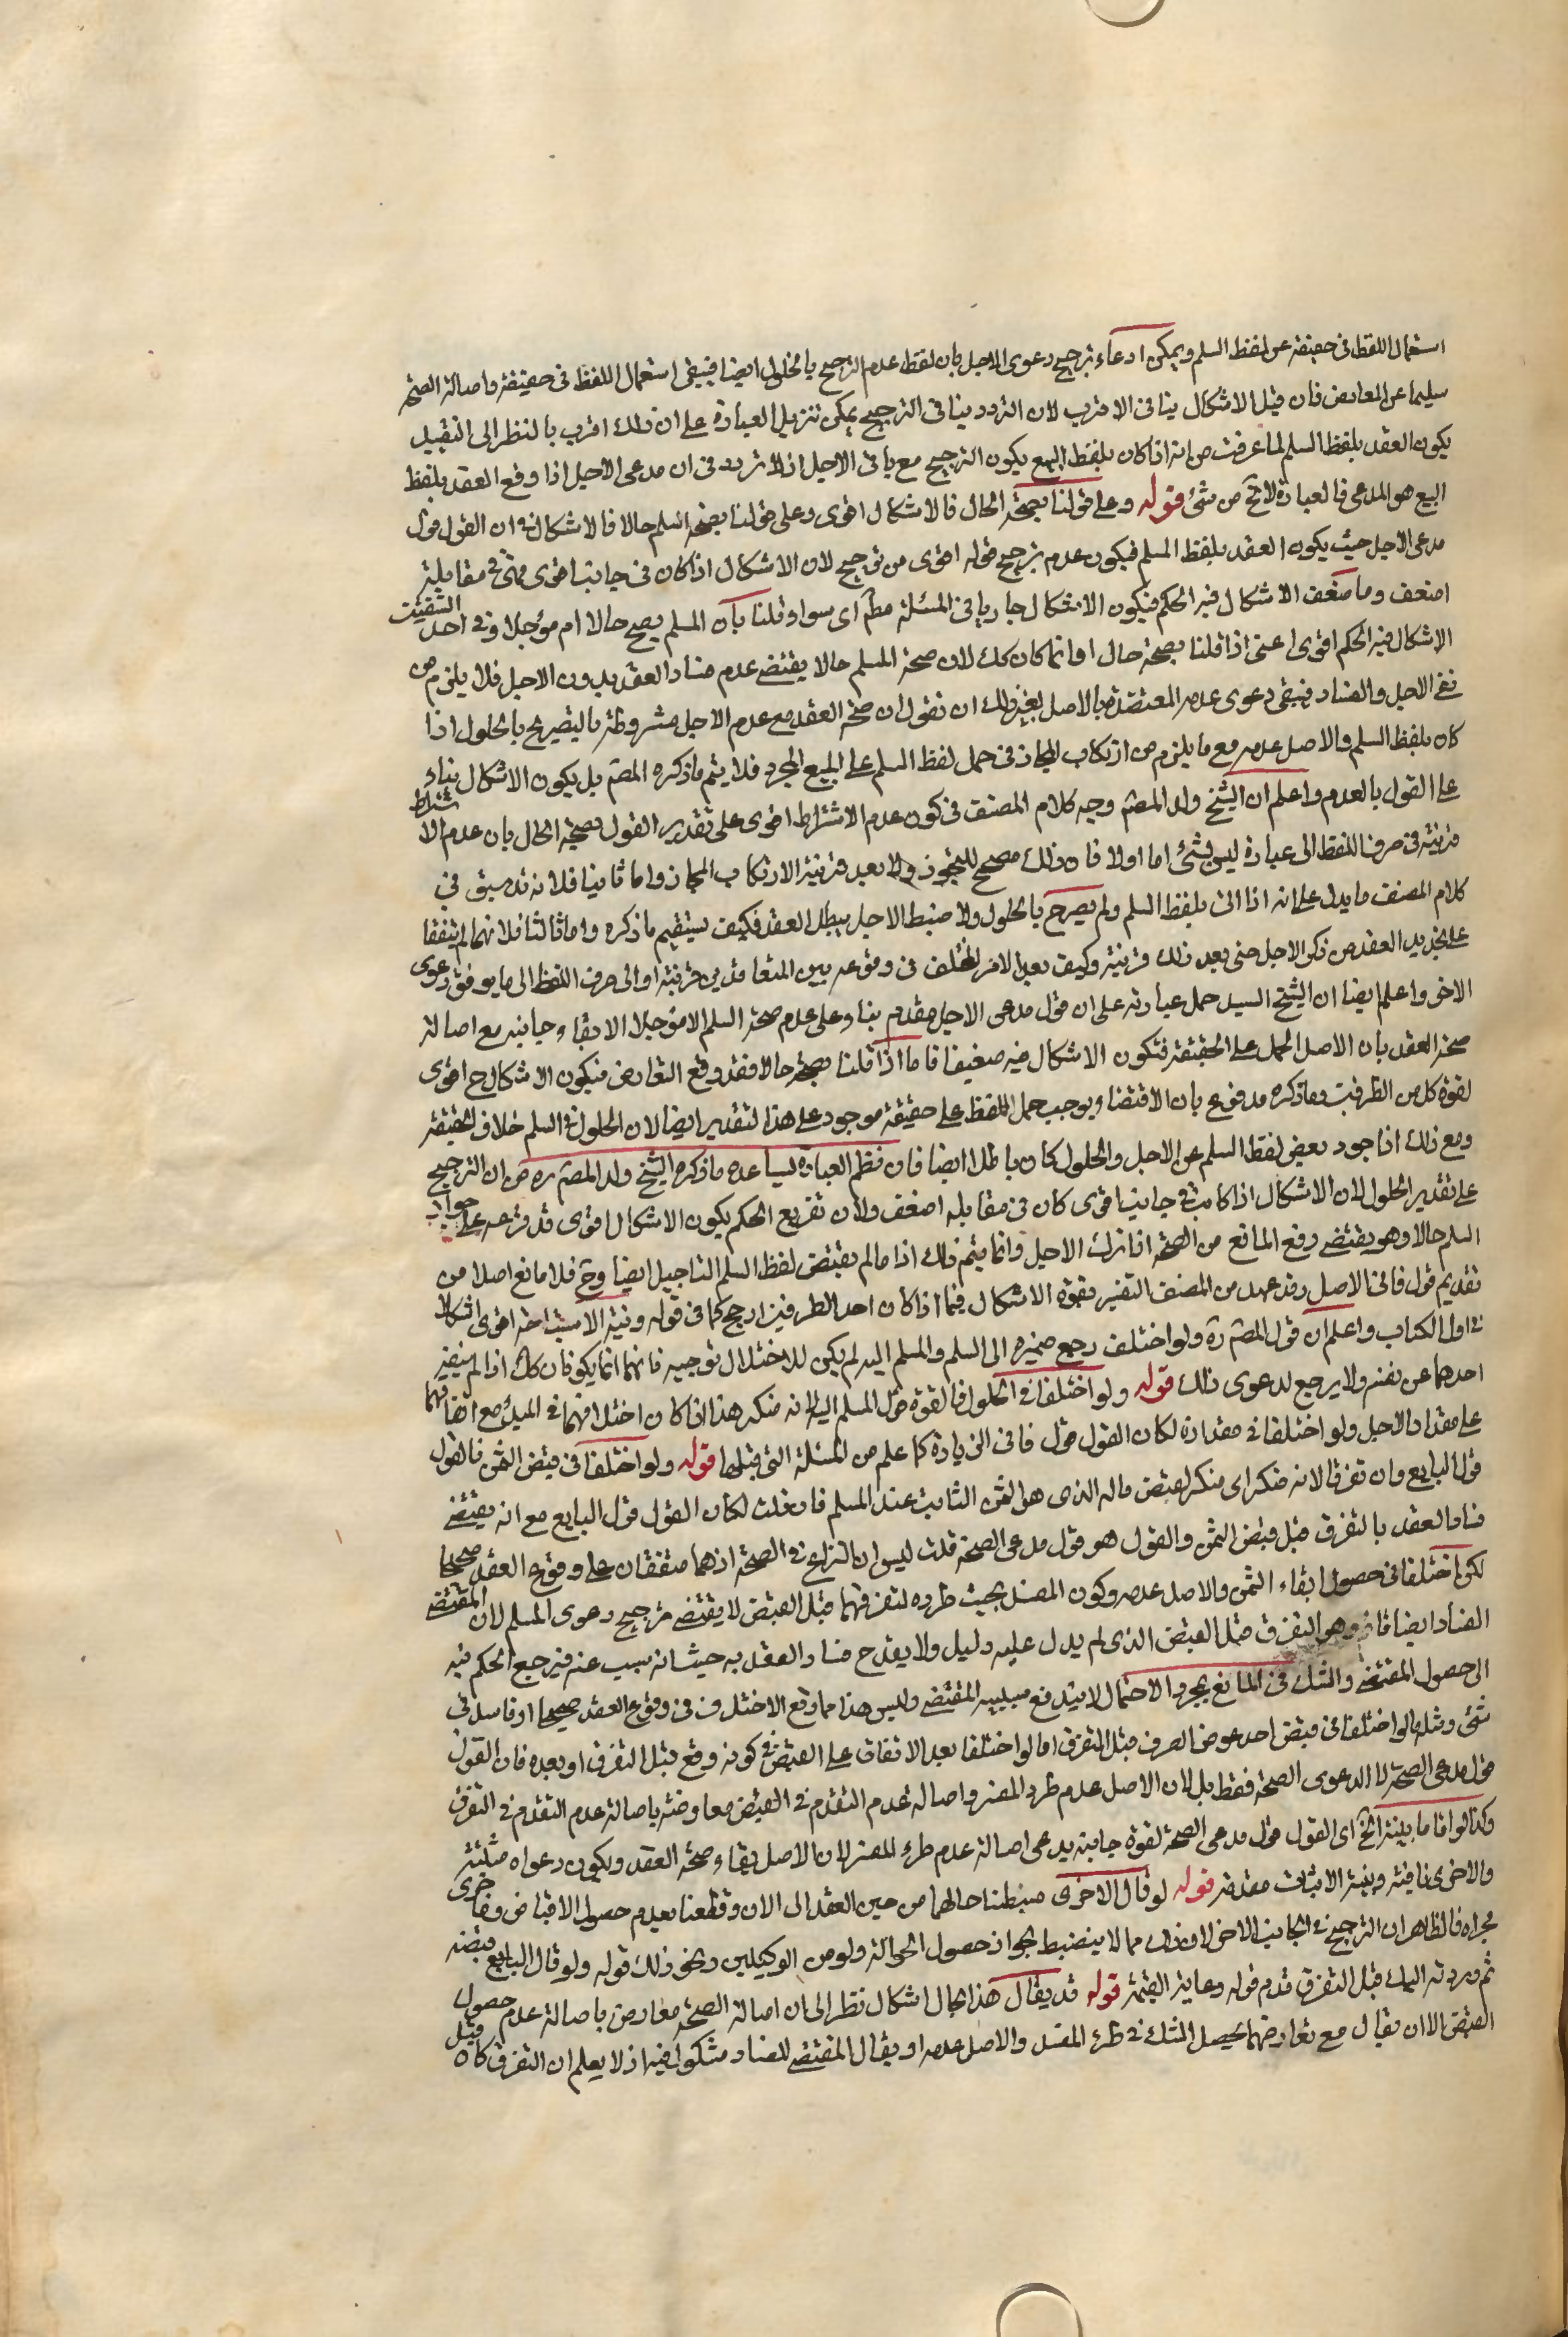 استعمال اللفظ فى حقيقته عن لفظ السلم ويمكن ادعاء ترجيح دعوى الاجل بان لفظ عدم الترجيح بالحلول ايضا فيبقى استعمال اللفظ فى حقيقته واصالة الصحة
سليما عن المعارض فان قيل الاشكال ينافى الاقرب لان التردد ينافى الترجيح يمكن تنزيل العبارة على ان ذلك اقرب بالنظر الى التقييد
يكون العقد بلفظ السلم لما عرفت من انه اذا كان بلفظ البيع يكون الترجيح مع نافى الاجل اذ لا تردد فى ان مدعى الاجل اذا وقع العقد بلفظ
البيع هو المدعى فالعبارة لا تخ من شئ قوله وعلى قولنا بصحة الحال فالاشكال اقوى وعلى قولنا بصحة السلم حالا فالاشكال فى ان القول قول
مدعى الاجل حيث يكون العقد بلفظ السلم فيكون عدم ترجيح قوله اقوى من ترجيح لان الاشكال اذا كان فى جانب اقوى فهو فى مقابله
اضعف وما ضعف الاشكال فيه الحكم فيكون الاشكال جاريا فى المسئلة مطم اى سواء قلنا بان السلم يصح حالا ام مؤجلا وفى احد الشقين
الاشكال فيه الحكم اقوى اعنى اذا قلنا بصحة حالا وانما كان كك لان صحة السلم حالا يقتضى عدم فساد العقد بدون الاجل فلا يلزم من
نفى الاجل والفساد فيبقى دعوى عدمه المعتضدة بالاصل لغير ذلك ان نقول ان صحة العقد مع عدم الاجل مشروطة بالتصريح بالحلول اذا
كان بلفظ السلم والاصل عدمه مع ما يلزم من ارتكاب المجاز فى حمل لفظ السلم على البيع المجرد فلا يتم ما ذكره المصم بل يكون الاشكال بناء
على القول بالعدم واعلم ان الشيخ ولد المصم وجه كلام المصنف فى كون عدم الاشتراط اقوى على تقدير القول بصحة الحال بان عدم الاشتراط
قرينة فى صرف اللفظ الى عبارة ليس بشئ اما اولا فان ذلك مصحح للتجوز ولا يعد قرينة الارتكاب المجاز واما ثانيا فلانه قد سبق فى
كلام المصنف ما يدل على انه اذا اتى بلفظ السلم ولم يصرح بالحلول ولا ضبط الاجل يبطل العقد فكيف يستقيم ما ذكره واما ثالثا فلانهما لم يتفقا
على تجريد العقد من ذكر الاجل حتى يعد ذلك قرينة وكيف يعد الامر المختلف فى وقوعه بين المتعاقدين قرينة او الى صرف اللفظ الى ما يوفق دعوى
الاخر واعلم ايضا ان الشيخ السيد حمل عبارته على ان قول مدعى الاجل مقدم بناء على عدم صحة السلم الا مؤجلا لابقاء جانبه مع اصالة
صحة العقد بان الاصل الحمل على الحقيقة فتكون الاشكال فيه ضعيفا فاما اذا قلنا بصحة حالا فقد وقع التعارض فيكون الاشكال ح اقوى
لقوة كل من الطرفين وما ذكره مدفوع بان الاقتضاء يوجب حمل اللفظ على حقيقة موجود على هذا لتقدير ايضا لان الحلول فى السلم خلاف الحقيقة
ومع ذلك اذا جود بعض لفظ السلم عن الاجل والحلول كان باطلا ايضا فان نظم العبارة ليساعده ما ذكره الشيخ ولد المصم ره من ان الترجيح
على تقدير الحلول لان الاشكال اذا كانت فى جانب اقوى كان فى مقابله اضعف ولان تفريع الحكم يكون الاشكال اقوى قد فرعه على جواز
السلم حالا وهو يقتضى رفع المانع من الصحة اذا ترك الاجل وانما يتم ذلك اذا ما لم يقتض لفظ السلم التاجيل ايضا وح فلا مانع اصلا من
تقديم قول نافى الاصل وقد عهد من المصنف التعبير بقوة الاشكال فيما اذا كان احد الطرفين ارجح كما فى قوله ونية الاستباحة اقوى اشكالا
فى اول الكتاب واعلم ان قول المصم ره ولو اختلف رجع ضميره الى السلم والمسلم اليه لم يكن للاختلال توجيه فانهما انما يكونان كك اذا لم ينفيه
احدهما عن نفسه ولا يرجع لدعوى ذلك قوله ولو اختلفا فى الحلول فالقول قول المسلم اليه لانه منكر هذا اذا كان اختلافهما فى المبدأ مع اتفاقهما
على مقدار الاجل ولو اختلفا فى مقداره لكان القول قول نافى الزيادة كما علم من المسئلة التى قبلها قوله ولو اختلفا فى قبض الثمن فالقول
قول البايع وان تفرقا لانه منكر اى منكر لقبض ماله الذى هو الثمن الثابت عند المسلم فان قلت لكان القول قول البايع مع انه يقتضى
فساد العقد بالتفرق قبل قبض الثمن والقول هو قول مدعى الصحة قلت ليس ان النزاع فى الصحة اذ هما متفقان على وقوع العقد صحيحا
لكن اختلفا فى حصول ابقاء الثمن والاصل عدمه وكون المفسد بحيث طرده لتفرقهما قبل القبض لا يقتضى ترجيح دعوى المسلم لان المقتضى
الفساد ايضا وهو التفرق قبل القبض الذى لم يدل عليه دليل ولا يقدح فساد العقد به حيث انه سبب عنه فيرجع الحكم فيه
الى حصول المقتضى والشك فى المانع بمجرد الاحتمال لا يندفع سببيه المقتضى وليس هذا مما وقع الاختلاف فى وقوع العقد صحيحا او فاسدا فى
شئ ومثله ما لو اختلفا فى قبض احد عوض الصرف قبل التفرق اما لو اختلفا بعد الاتفاق على القبض فى كونه وقع قبل التفرق او بعده فان القول
قول مدعى الصحة لا الدعوى الصحة فقط بل لان الاصل عدم طرو المفسد واصالة عدم التقدم فى القبض معارضة باصالة عدم التقدم فى التفرق
وكذا لو اقاما بينة الخ اى القول قول مدعى الصحة لقوة جانبه يدعى اصالة عدم طرو المفسد لان الاصل بقاء صحة العقد ويكون دعواه مثبتة
والاخرى نافية وبينة الاثبات مقدمة قوله لو قال الاخرى ضبطنا حالهما من حين العقد الى الان وقطعنا بعدم حصول الاقباض وما جرى
مجراه فالظاهر ان الترجيح فى الجانب الاخر لان ذلك مما لا ينضبط لجواز حصول الحوالة ولو من الوكيلين ونحو ذلك قوله ولو قال البايع قبضته
ثم رددته اليك قبل التفرق قدم قوله رعاية الصحة قوله قد يقال هذا مجال اشكال نظرا الى ان اصالة الصحة معارض باصالة عدم حصول
القبض الا ان يقال مع تعارضهما يحصل الشك فى طرو المفسد والاصل عدمه او يقال المقتضى للفساد مشكوك فيه اذ لا يعلم ان التفرق كان قبل